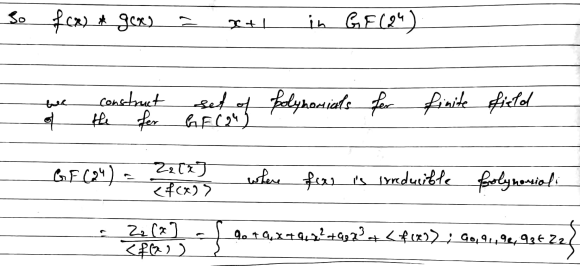 So f(x) * g(x) = x+1 in GF(2⁴)
we construct set of polynomials for finite field
of the for GF(2⁴)
GF(2⁴) = Z₂[x] / <f(x)> where f(x) is irreducible polynomial.
= Z₂[x] / <f(x)> = { a₀ + a₁x + a₂x² + a₃x³ + <f(x)> ; a₀, a₁, a₂, a₃ ∈ Z₂ }